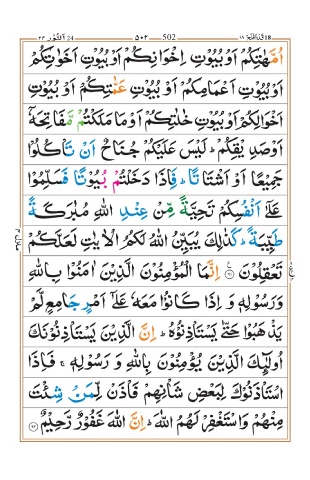 قد افلح ۱۸ 502 ۵۰۲ النّور 24
اُمَّهٰتِكُمْ اَوْ بُيُوْتِ اِخْوَانِكُمْ اَوْ بُيُوْتِ اَخَوٰتِكُمْ
اَوْ بُيُوْتِ اَعْمَامِكُمْ اَوْ بُيُوْتِ عَمّٰتِكُمْ اَوْ بُيُوْتِ
اَخْوَالِكُمْ اَوْ بُيُوْتِ خٰلٰتِكُمْ اَوْ مَا مَلَكْتُمْ مَّفَاتِحَهٗۤ
اَوْ صَدِيْقِكُمْ ؕ لَيْسَ عَلَيْكُمْ جُنَاحٌ اَنْ تَاْكُلُوْا
جَمِيْعًا اَوْ اَشْتَاتًا ؕ فَاِذَا دَخَلْتُمْ بُيُوْتًا فَسَلِّمُوْا
عَلٰۤى اَنْفُسِكُمْ تَحِيَّةً مِّنْ عِنْدِ اللّٰهِ مُبٰرَكَةً
طَيِّبَةً ؕ كَذٰلِكَ يُبَيِّنُ اللّٰهُ لَكُمُ الْاٰيٰتِ لَعَلَّكُمْ
تَعْقِلُوْنَ ۶۱ اِنَّمَا الْمُؤْمِنُوْنَ الَّذِيْنَ اٰمَنُوْا بِاللّٰهِ
وَرَسُوْلِهٖ وَ اِذَا كَانُوْا مَعَهٗ عَلٰۤى اَمْرٍ جَامِعٍ لَّمْ
يَذْهَبُوْا حَتّٰى يَسْتَاْذِنُوْهُ ؕ اِنَّ الَّذِيْنَ يَسْتَاْذِنُوْنَكَ
اُولٰٓئِكَ الَّذِيْنَ يُؤْمِنُوْنَ بِاللّٰهِ وَ رَسُوْلِهٖ ۚ فَاِذَا
اسْتَاْذَنُوْكَ لِبَعْضِ شَاْنِهِمْ فَاْذَنْ لِّمَنْ شِئْتَ
مِنْهُمْ وَاسْتَغْفِرْ لَهُمُ اللّٰهَ ؕ اِنَّ اللّٰهَ غَفُوْرٌ رَّحِيْمٌ ۶۲